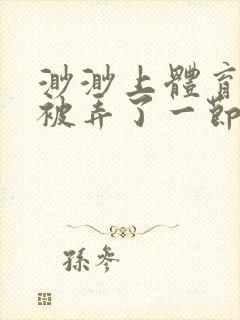 渺渺上體育
被弄了一節
孫參